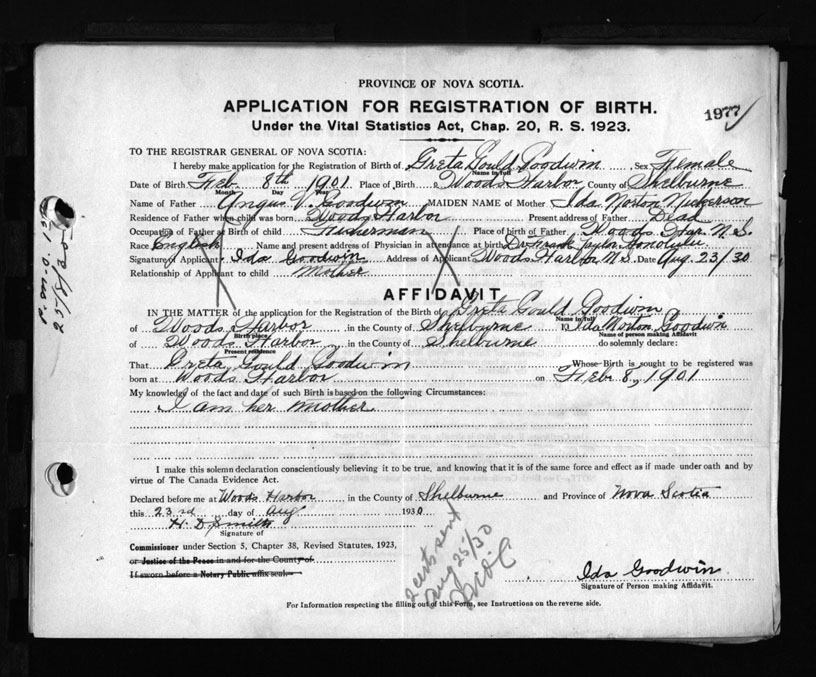 PROVINCE OF NOVA SCOTIA.
APPLICATION FOR REGISTRATION OF BIRTH.
1977
Under the Vital Statistics Act, Chap. 20, R. S. 1923.
TO THE REGISTRAR GENERAL OF NOVA SCOTIA:
I hereby make application for the Registration of Birth of Greta Gould Goodwin Sex Female
Name in full
Date of Birth Feb. 8th 1901 Place of Birth Woods Harbor County of Shelburne
Month Day Year
Name of Father Angus V. Goodwin MAIDEN NAME of Mother Ida Morton Nickerson
Residence of Father when child was born Woods Harbor Present address of Father Dead
Occupation of Father at Birth of child Fisherman Place of birth of Father Woods Har. N.S.
Race English Name and present address of Physician in attendance at birth Dr Frank Taylor Honolulu
Signature of Applicant Ida Goodwin Address of Applicant Woods Harbor N.S. Date Aug. 23/30
Relationship of Applicant to child Mother
AFFIDAVIT
IN THE MATTER of the application for the Registration of the Birth of Greta Gould Goodwin
Name in full
of Woods Harbor in the County of Shelburne I, Ida Morton Goodwin
Birth place Name of person making Affidavit
of Woods Harbor in the County of Shelburne do solemnly declare:
Present residence
That Greta Gould Goodwin Whose Birth is sought to be registered was
born at Woods Harbor on Feb 8, 1901
My knowledge of the fact and date of such Birth is based on the following Circumstances:
I am her mother
I make this solemn declaration conscientiously believing it to be true, and knowing that it is of the same force and effect as if made under oath and by
virtue of The Canada Evidence Act.
Declared before me at Woods Harbor in the County of Shelburne and Province of Nova Scotia
this 23rd day of Aug 1930
H. D. Smith
Signature of
Commissioner under Section 5, Chapter 38, Revised Statutes, 1923,
or Justice of the Peace in and for the County of
If sworn before a Notary Public affix seal
2 certs sent
Aug 25/30
Ida Goodwin
Signature of Person making Affidavit.
For Information respecting the filling out of this Form, see Instructions on the reverse side.
25/8/30